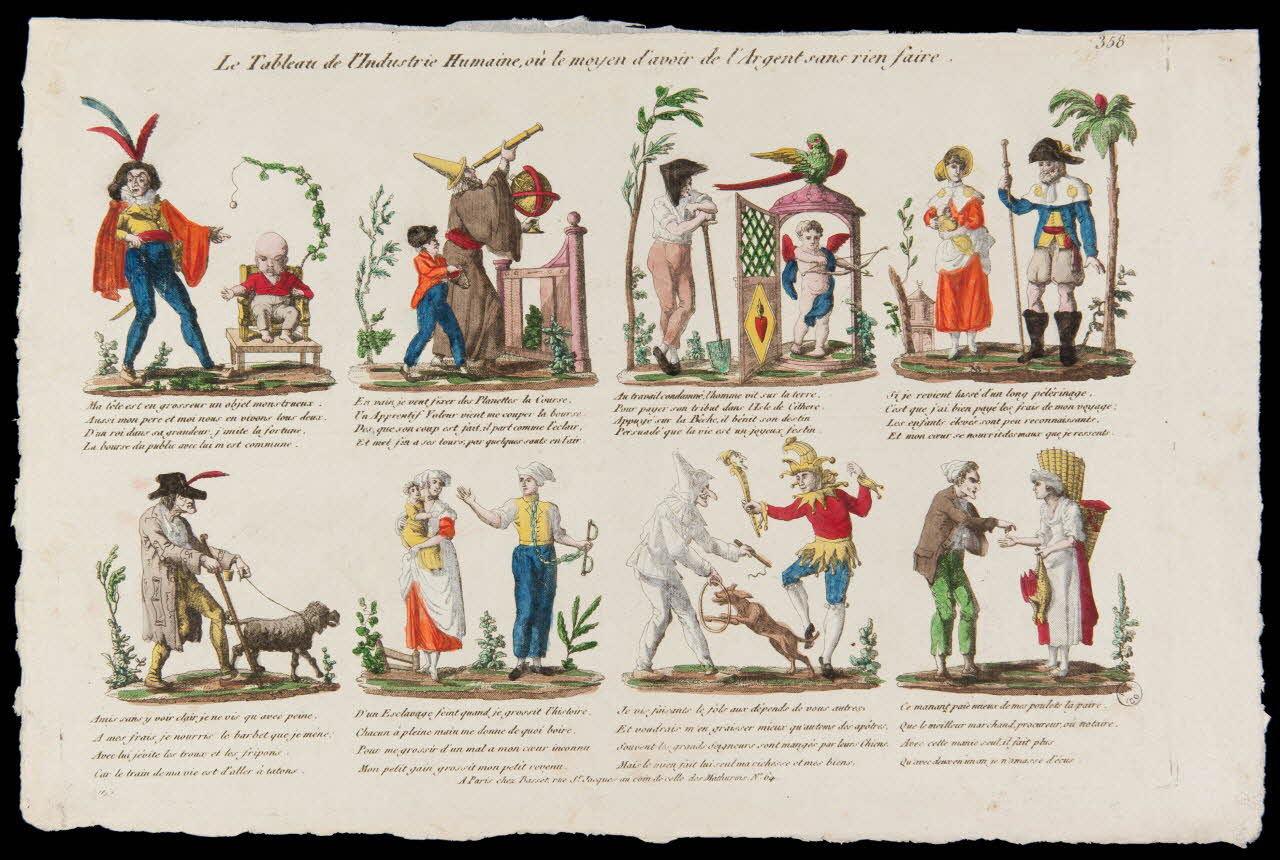 358
Le Tableau de l'Industrie Humaine, où le moyen d'avoir de l'Argent sans rien faire.
Ma tête est en grosseur un objet monstrueux.
Aussi mon pere et moi nous en vivons tous deux.
D'un roi dans sa grandeur, j'imite la fortune.
La bourse du public avec lui m'est commune.
En vain je veut fixer des Planettes la Course.
Un Apprentif Voleur vient me couper la bourse
Des que son coup est fait, il part comme l'éclair,
Et met fin a ses tours, par quelques sauts en l'air
Au travail condamné, l'homme vit sur la terre.
Pour payer son tribut dans l'Isle de Cithere.
Appuyé sur la Bêche, il bénit son destin
Persuadé que la vie est un joyeux festin.
Si je revient lassé d'un long pélérinage,
C'est que j'ai bien payé les frais de mon voyage;
Les enfants elevés sont peu reconnaissants.
Et mon cœur se nourrit des maux que je ressents.
Amis sans y voir clair, je ne vis qu'avec peine.
A mes frais, je nourris le barbet que je mène;
Avec lui j'évite les troux et les fripons.
Car le train de ma vie est d'aller à tatons.
D'un Esclavage feint quand je grossit l'histoire.
Chacun à pleine main me donne de quoi boire.
Pour me grossir d'un mal a mon cœur inconnu
Mon petit gain grossit mon petit revenu.
Je vis faisants le fols aux dépends de vous autres,
Et voudrais m'en graisser mieux qu'autems des apôtres.
Souvent les grands seigneurs sont mangés par leurs Chiens.
Mais le mien fait lui seul ma richesse et mes biens.
Ce manant paie mieux de mes poulets la paire.
Que le meilleur marchand, procureur, où notaire.
Avec cette manie seul il fait plus
Qu'avec deux en un an je n'amasse d'écus
A Paris chez Basset, rue St. Jacques au coin de celle des Mathurins, No. 64